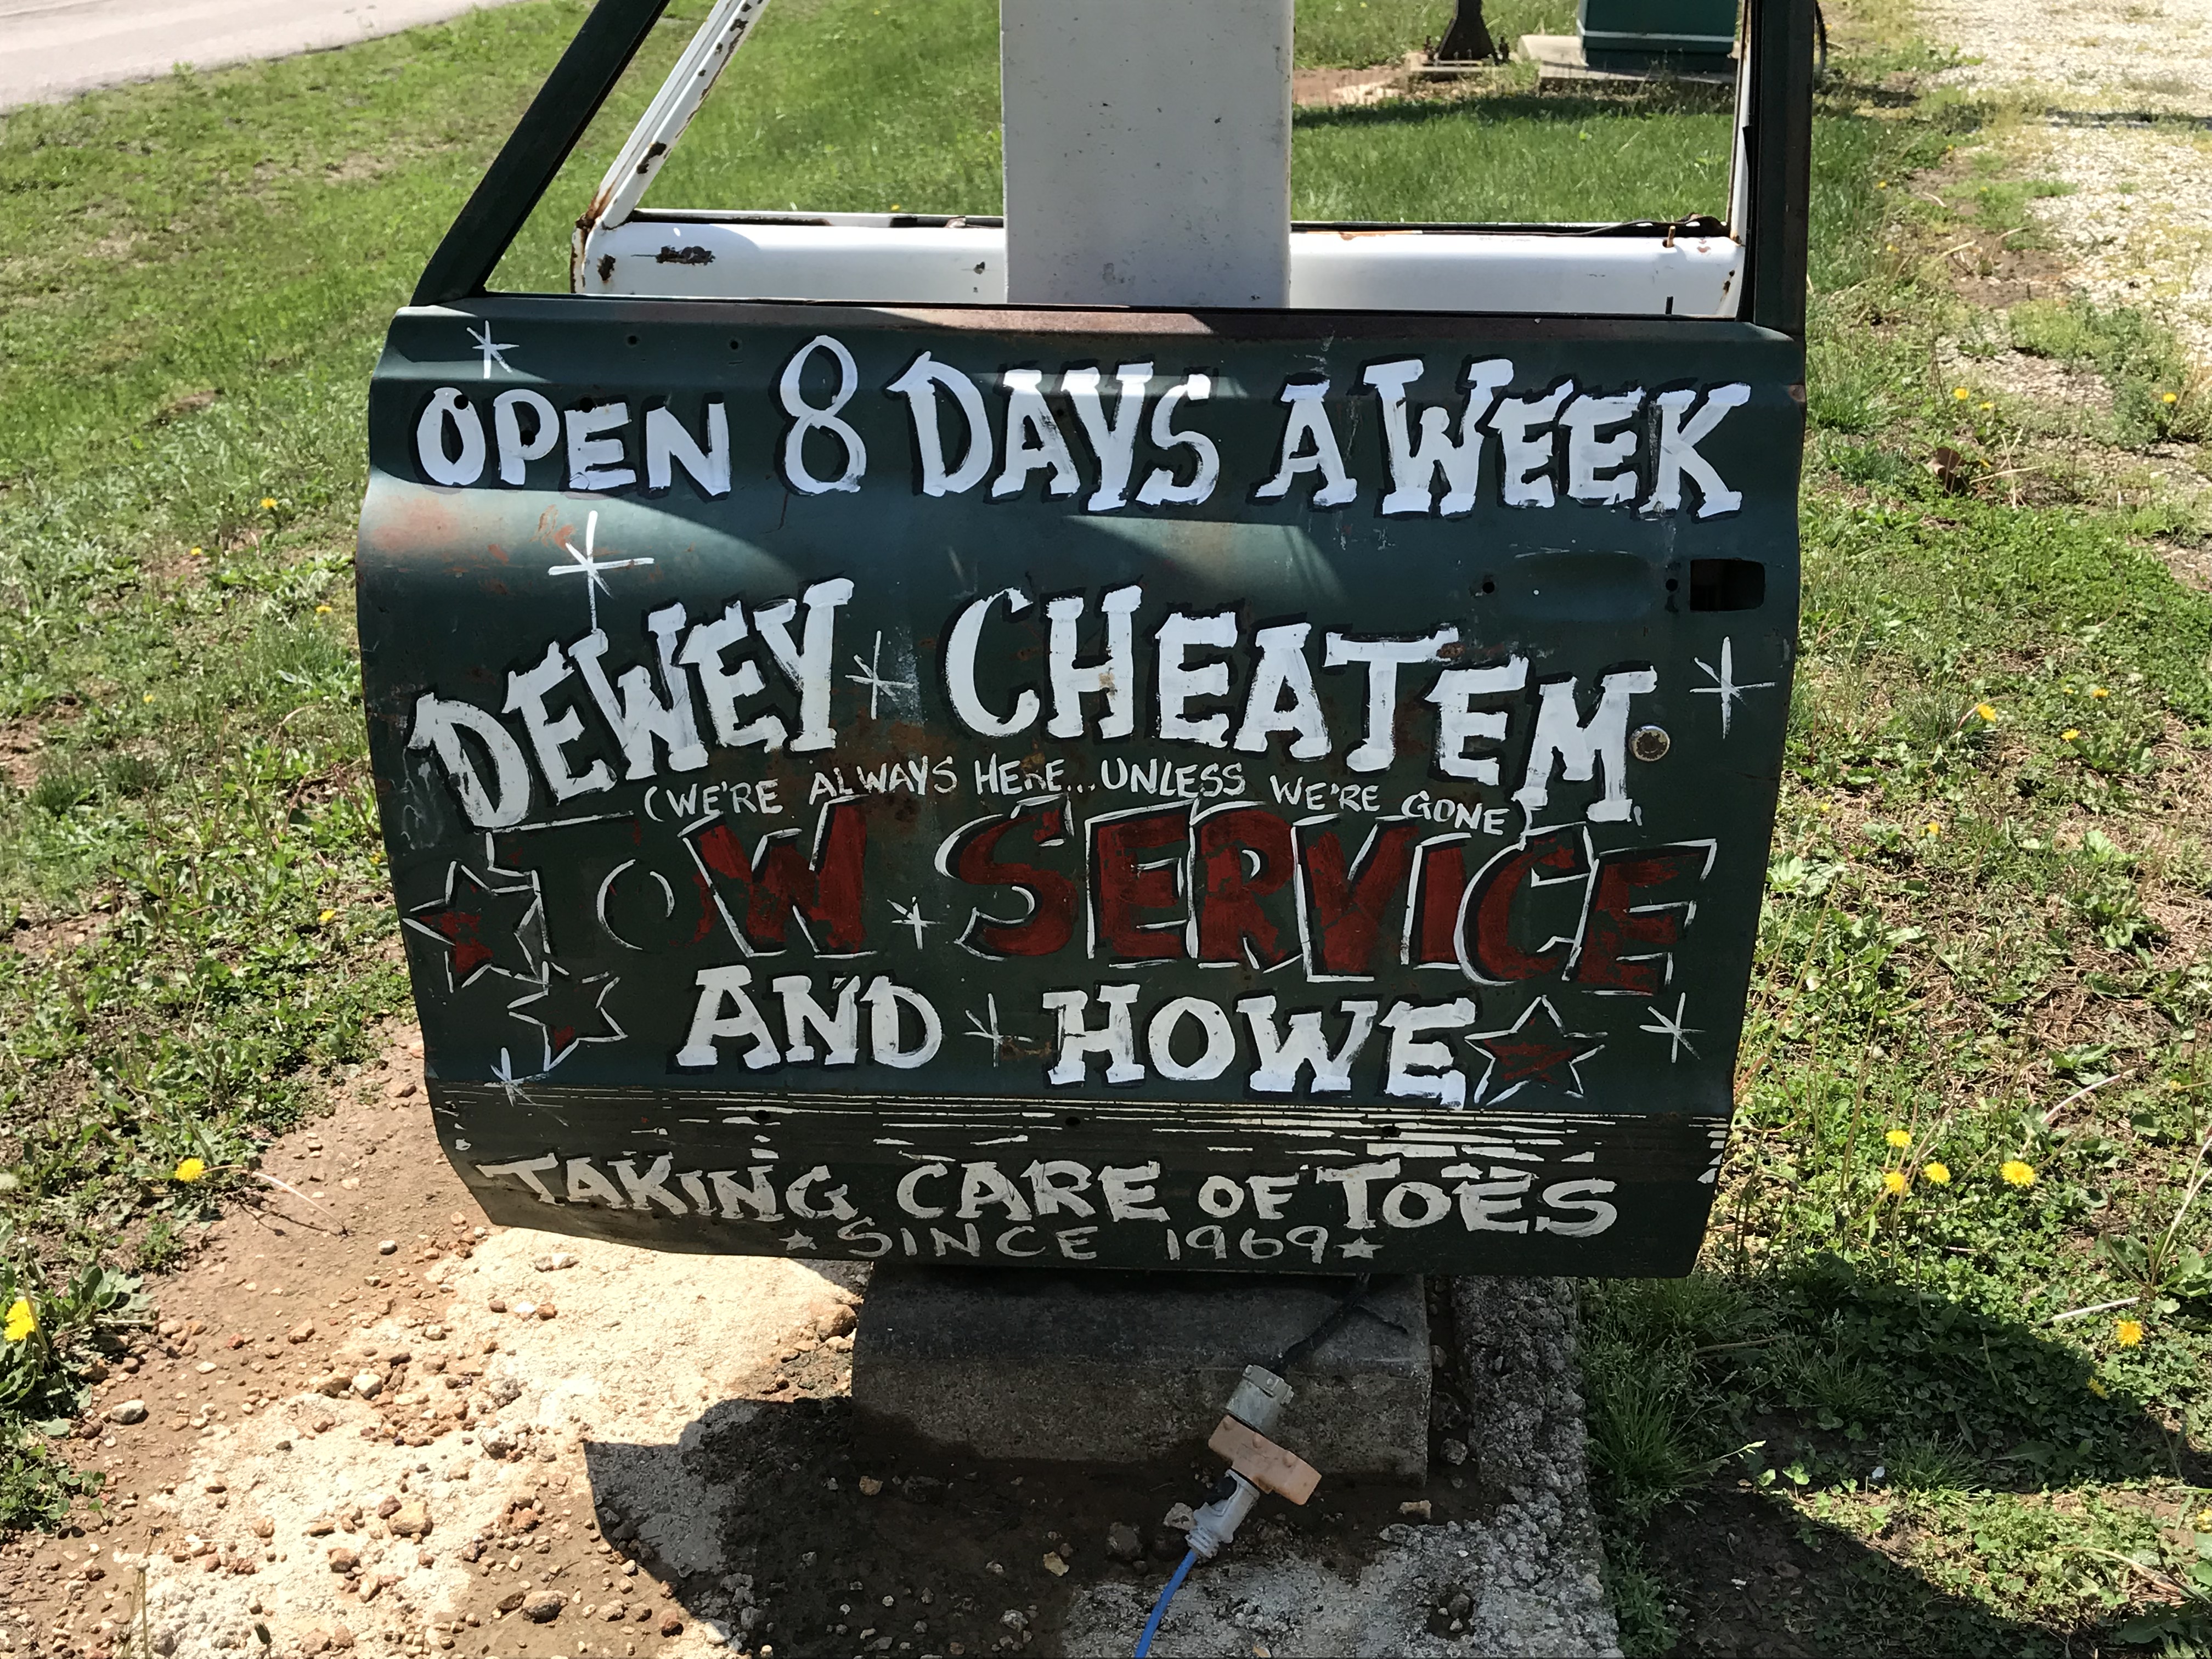 OPEN 8 DAYS A WEEK
DEWEY CHEATEM
(WE'RE ALWAYS HERE...UNLESS WE'RE GONE)
TOW SERVICE
AND HOWE
TAKING CARE OF TOES
SINCE 1969